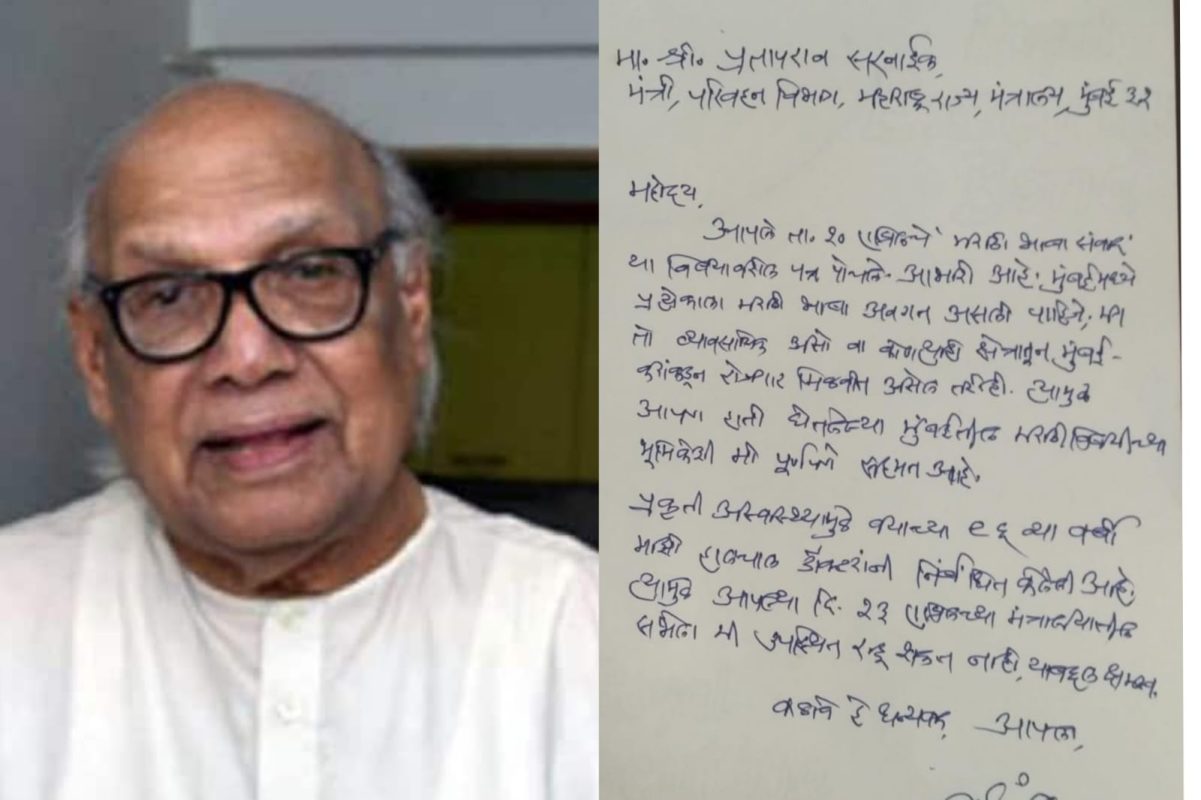 मा. श्री. प्रतापराव सरनाईक,
मंत्री, परिवहन विभाग, महाराष्ट्र राज्य, मंत्रालय, मुंबई ३२
महोदय,
आपले ता. २० एप्रिलचे 'मराठी भाषा संवाद'
या विषयावरील पत्र पोचले. आभारी आहे. मुंबईमध्ये
प्रत्येकाला मराठी भाषा अवगत असली पाहिजे, मग
तो व्यावसायिक असो वा कोणत्याही क्षेत्रातून मुंबई-
करांकडून रोजगार मिळवीत असेल तरीही. त्यामुळे
आपण हाती घेतलेल्या मुंबईतील मराठीविषयीच्या
भूमिकेशी मी पूर्णपणे सहमत आहे.
प्रकृती अस्वास्थ्यामुळे वयाच्या ९६ व्या वर्षी
माझी हालचाल डॉक्टरांनी निर्बंधित केलेली आहे.
त्यामुळे आपल्या दि. २३ एप्रिलच्या मंत्रालयातील
सभेला मी उपस्थित राहू शकत नाही, याबद्दल क्षमस्व.
कळावे हे धन्यवाद, आपला,